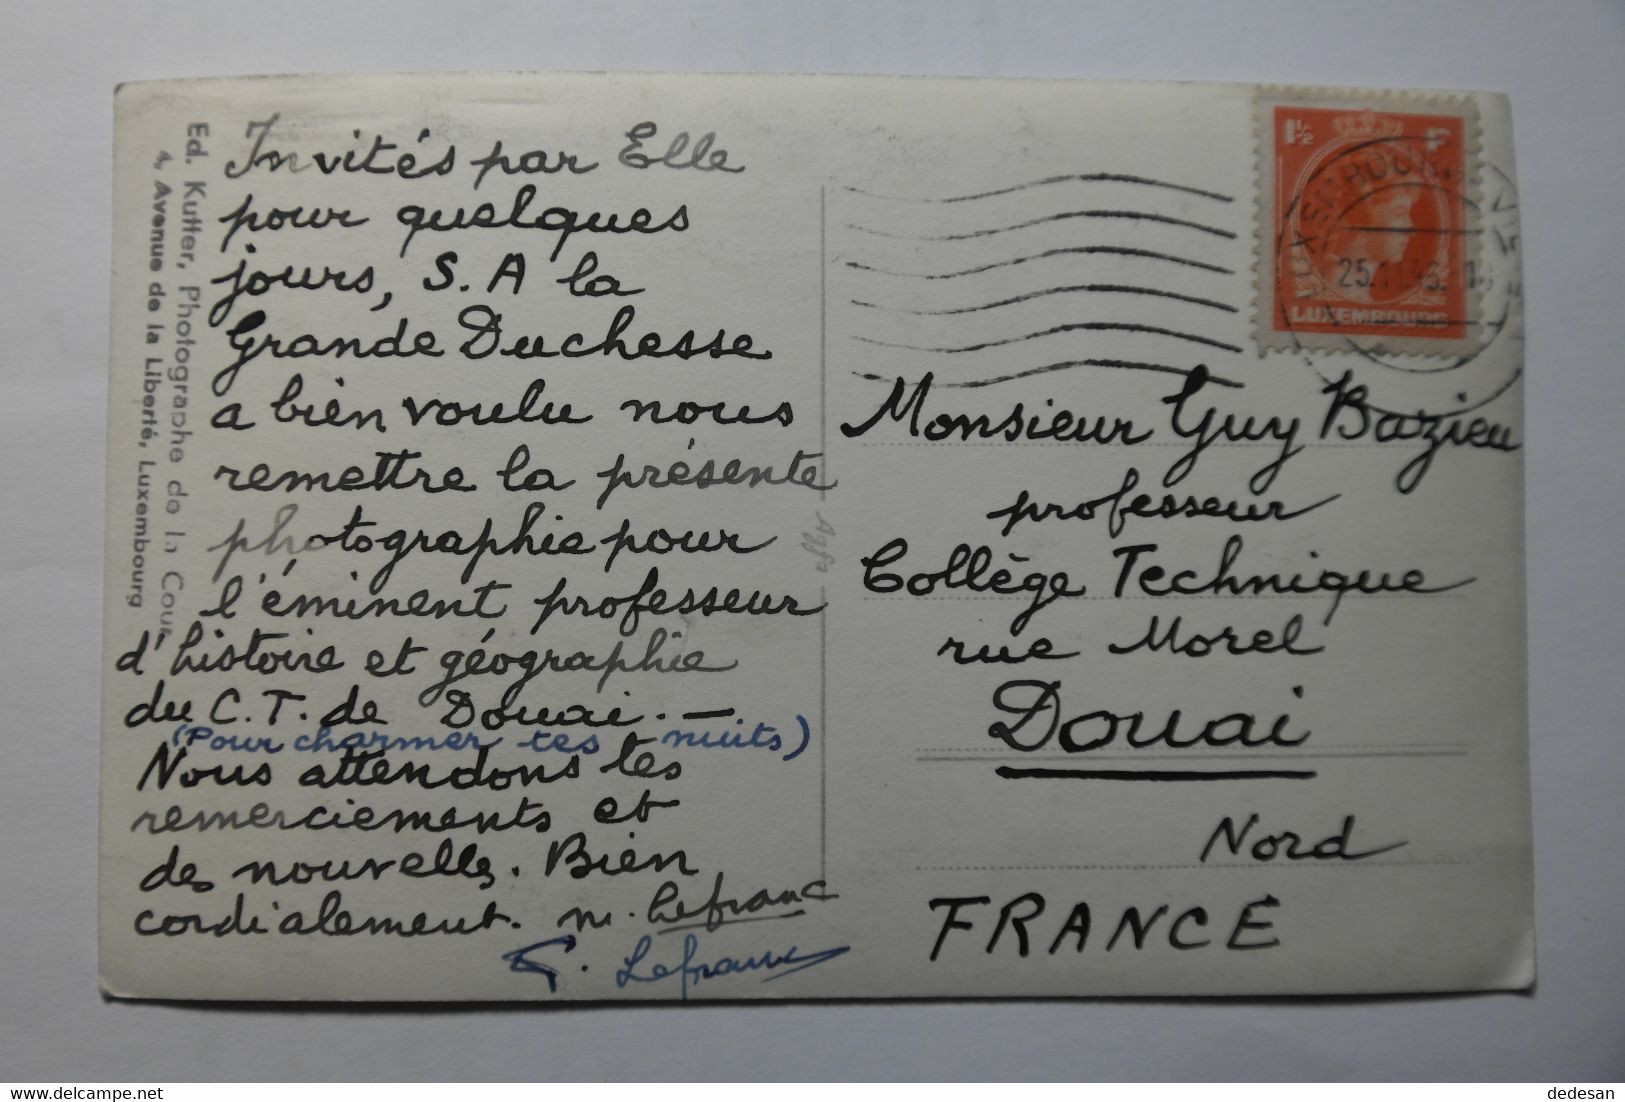 Invités par Elle
pour quelques
jours, S.A la
Grande Duchesse
a bien voulu nous
remettre la présente
photographie pour
l'éminent professeur
d'histoire et géographie
du C.T. de Douai. —
(Pour charmer tes nuits)
Nous attendons tes
remerciements et
des nouvelles. Bien
cordialement. M. Lefranc
P. Lefranc
Ed. Kutter, Photographe de la Cour
4, Avenue de la Liberté, Luxembourg
Agfa
1½ F
LUXEMBOURG
LUXEMBOURG VILLE
Monsieur Guy Bazieu
professeur
Collège Technique
rue Morel
Douai
Nord
FRANCE
delcampe.net
dedesan